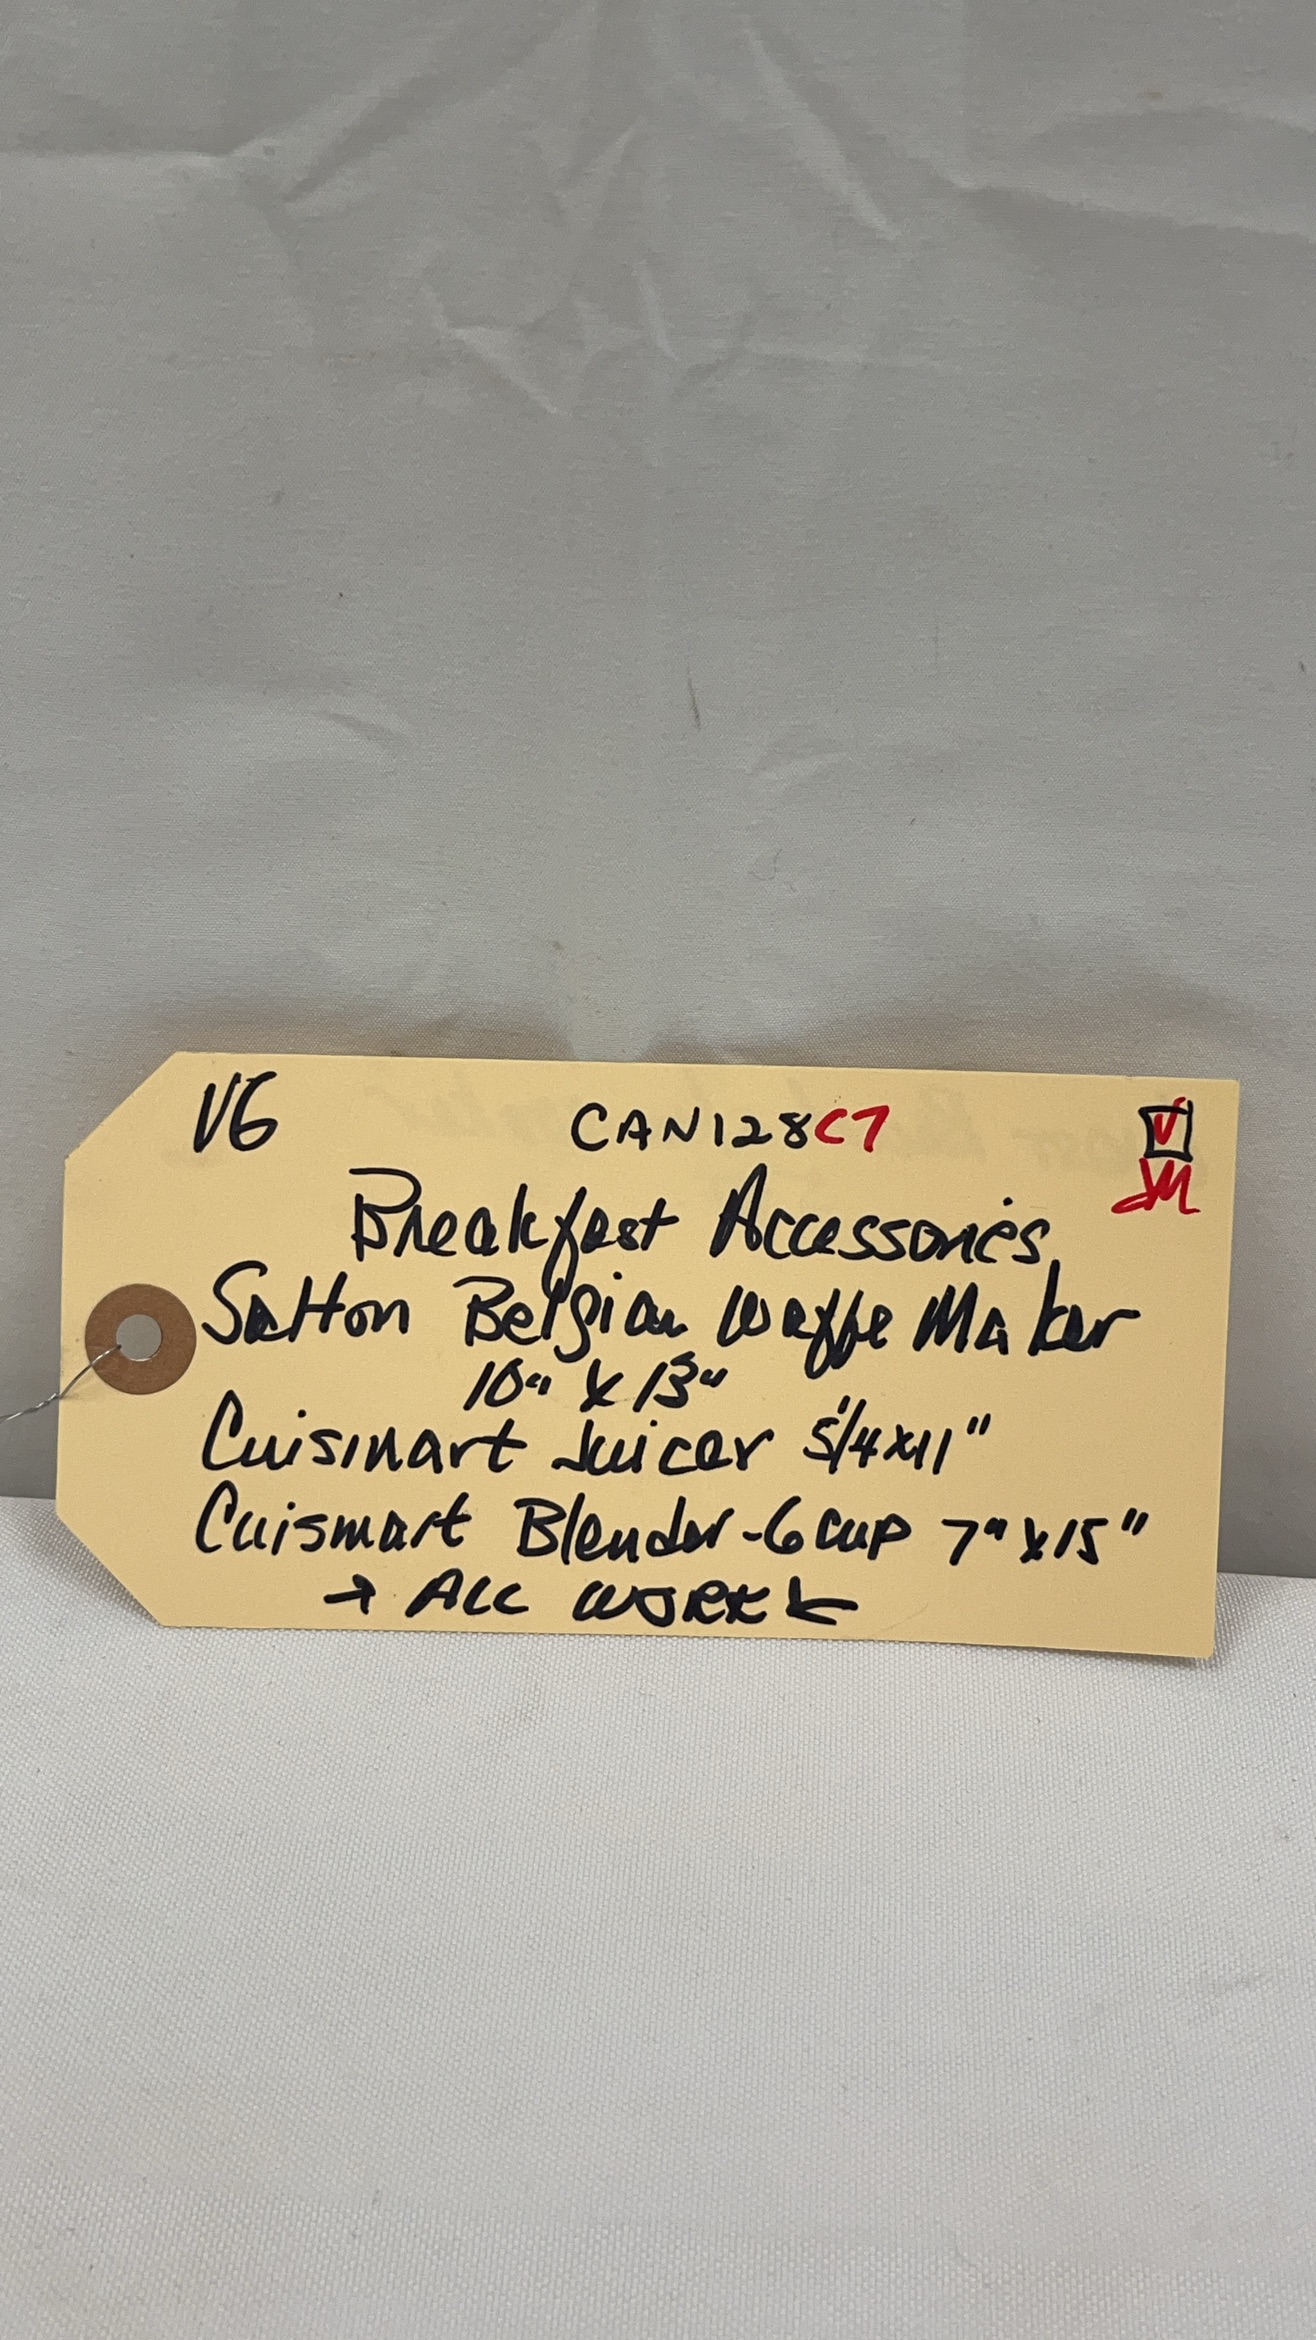 VG CAN128C7 V
JM
Breakfast Accessories
Salton Belgian Waffe Maker
10" x 13"
Cuisinart Juicer 5 1/4 x 11"
Cuisinart Blender - 6 cup 7" x 15"
→ ALL WORK ←